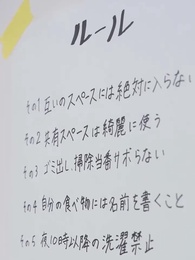 ルール
その1 互いのスペースには絶対に入らない
その2 共有スペースは綺麗に使う
その3 ゴミ出し、掃除当番サボらない
その4 自分の食べ物には名前を書くこと
その5 夜10時以降の洗濯禁止